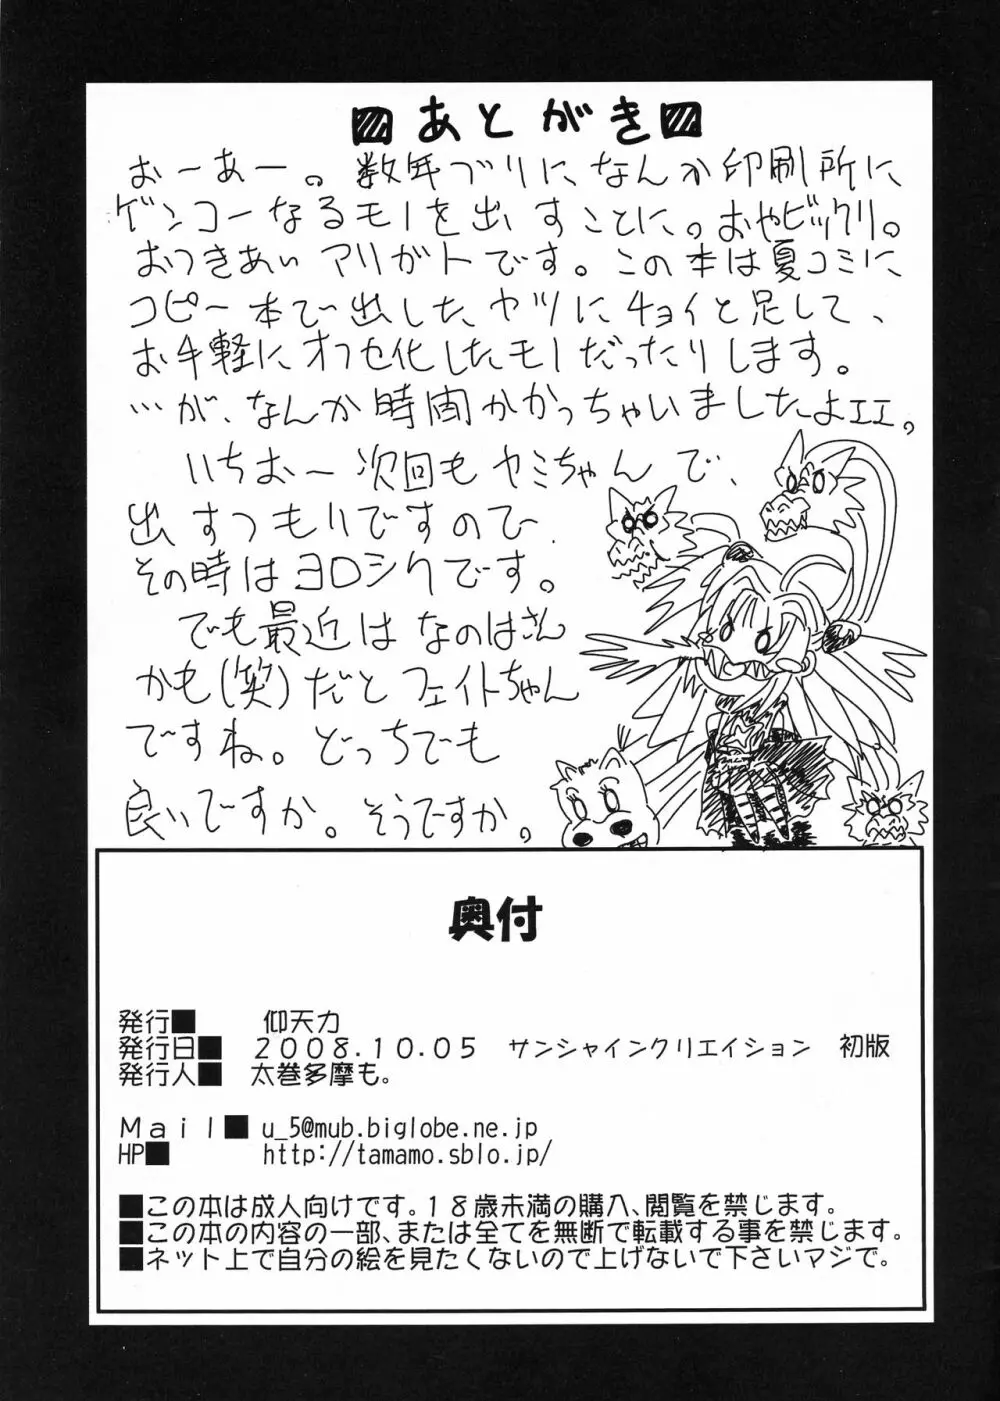 あとがき
おーあー。数年ブリに、なんか印刷所に
ゲンコーなるモノを出すことに。おやビックリ。
おつきあいアリガトです。この本は夏コミに
コピー本で出したヤツにチョイと足して、
お手軽にオフセ化したモノだったりします。
…が、なんか時間かかっちゃいましたよエエ。
いちおー次回もヤミちゃんで、
出すつもりですので、
その時はヨロシクです。
でも最近はなのはさん
かも(笑)だとフェイトちゃん
ですね。どっちでも
良いですか。そうですか。
奥付
発行■ 仰天力
発行日■ 2008.10.05 サンシャインクリエイション 初版
発行人■ 太巻多摩も。
Mail■ u_5@mub.biglobe.ne.jp
HP■ http://tamamo.sblo.jp/
■この本は成人向けです。18歳未満の購入、閲覧を禁じます。
■この本の内容の一部、または全てを無断で転載する事を禁じます。
■ネット上で自分の絵を見たくないので上げないで下さいマジで。